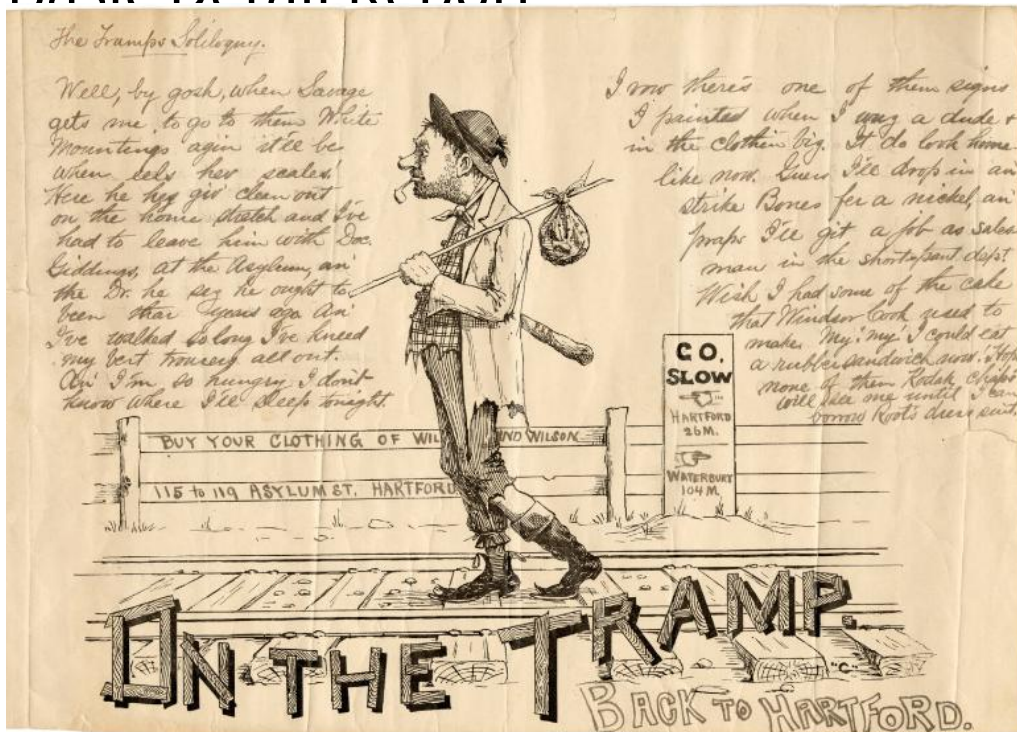 The Tramps Soliloquy.
Well, by gosh, when Savage
gets me to go to them White
Mountings agin it'll be
when eels hev scales.
Here he hez giv' clean out
on the home stretch and I've
had to leave him with Doc.
Giddings, at the Asylum, an'
the Dr. he sez he ought to
been thar years ago. An'
I've walked so long I've kneed
my best trousers all out.
An' I'm so hungry I don't
know where I'll sleep tonight.
I vow there's one of them signs
I painted when I wuz a dude &
in the clothin' biz. It do look home-
like now. Guess I'll drop in an'
strike Bones fer a nickel, an'
praps I'll git a job as sales
man in the short pant dept.
Wish I had some of the cake
that Windsor Cook used to
make. My! my! I could eat
a rubber sandwich now. Hope
none of them Kodak chaps
will see me until I can
borrow Root's dress suit.
GO.
SLOW
HARTFORD
26M.
WATERBURY
104 M.
BUY YOUR CLOTHING OF WIL ND WILSON
115 to 119 ASYLUM ST. HARTFORD
ON THE TRAMP.
"C"
BACK TO HARTFORD.